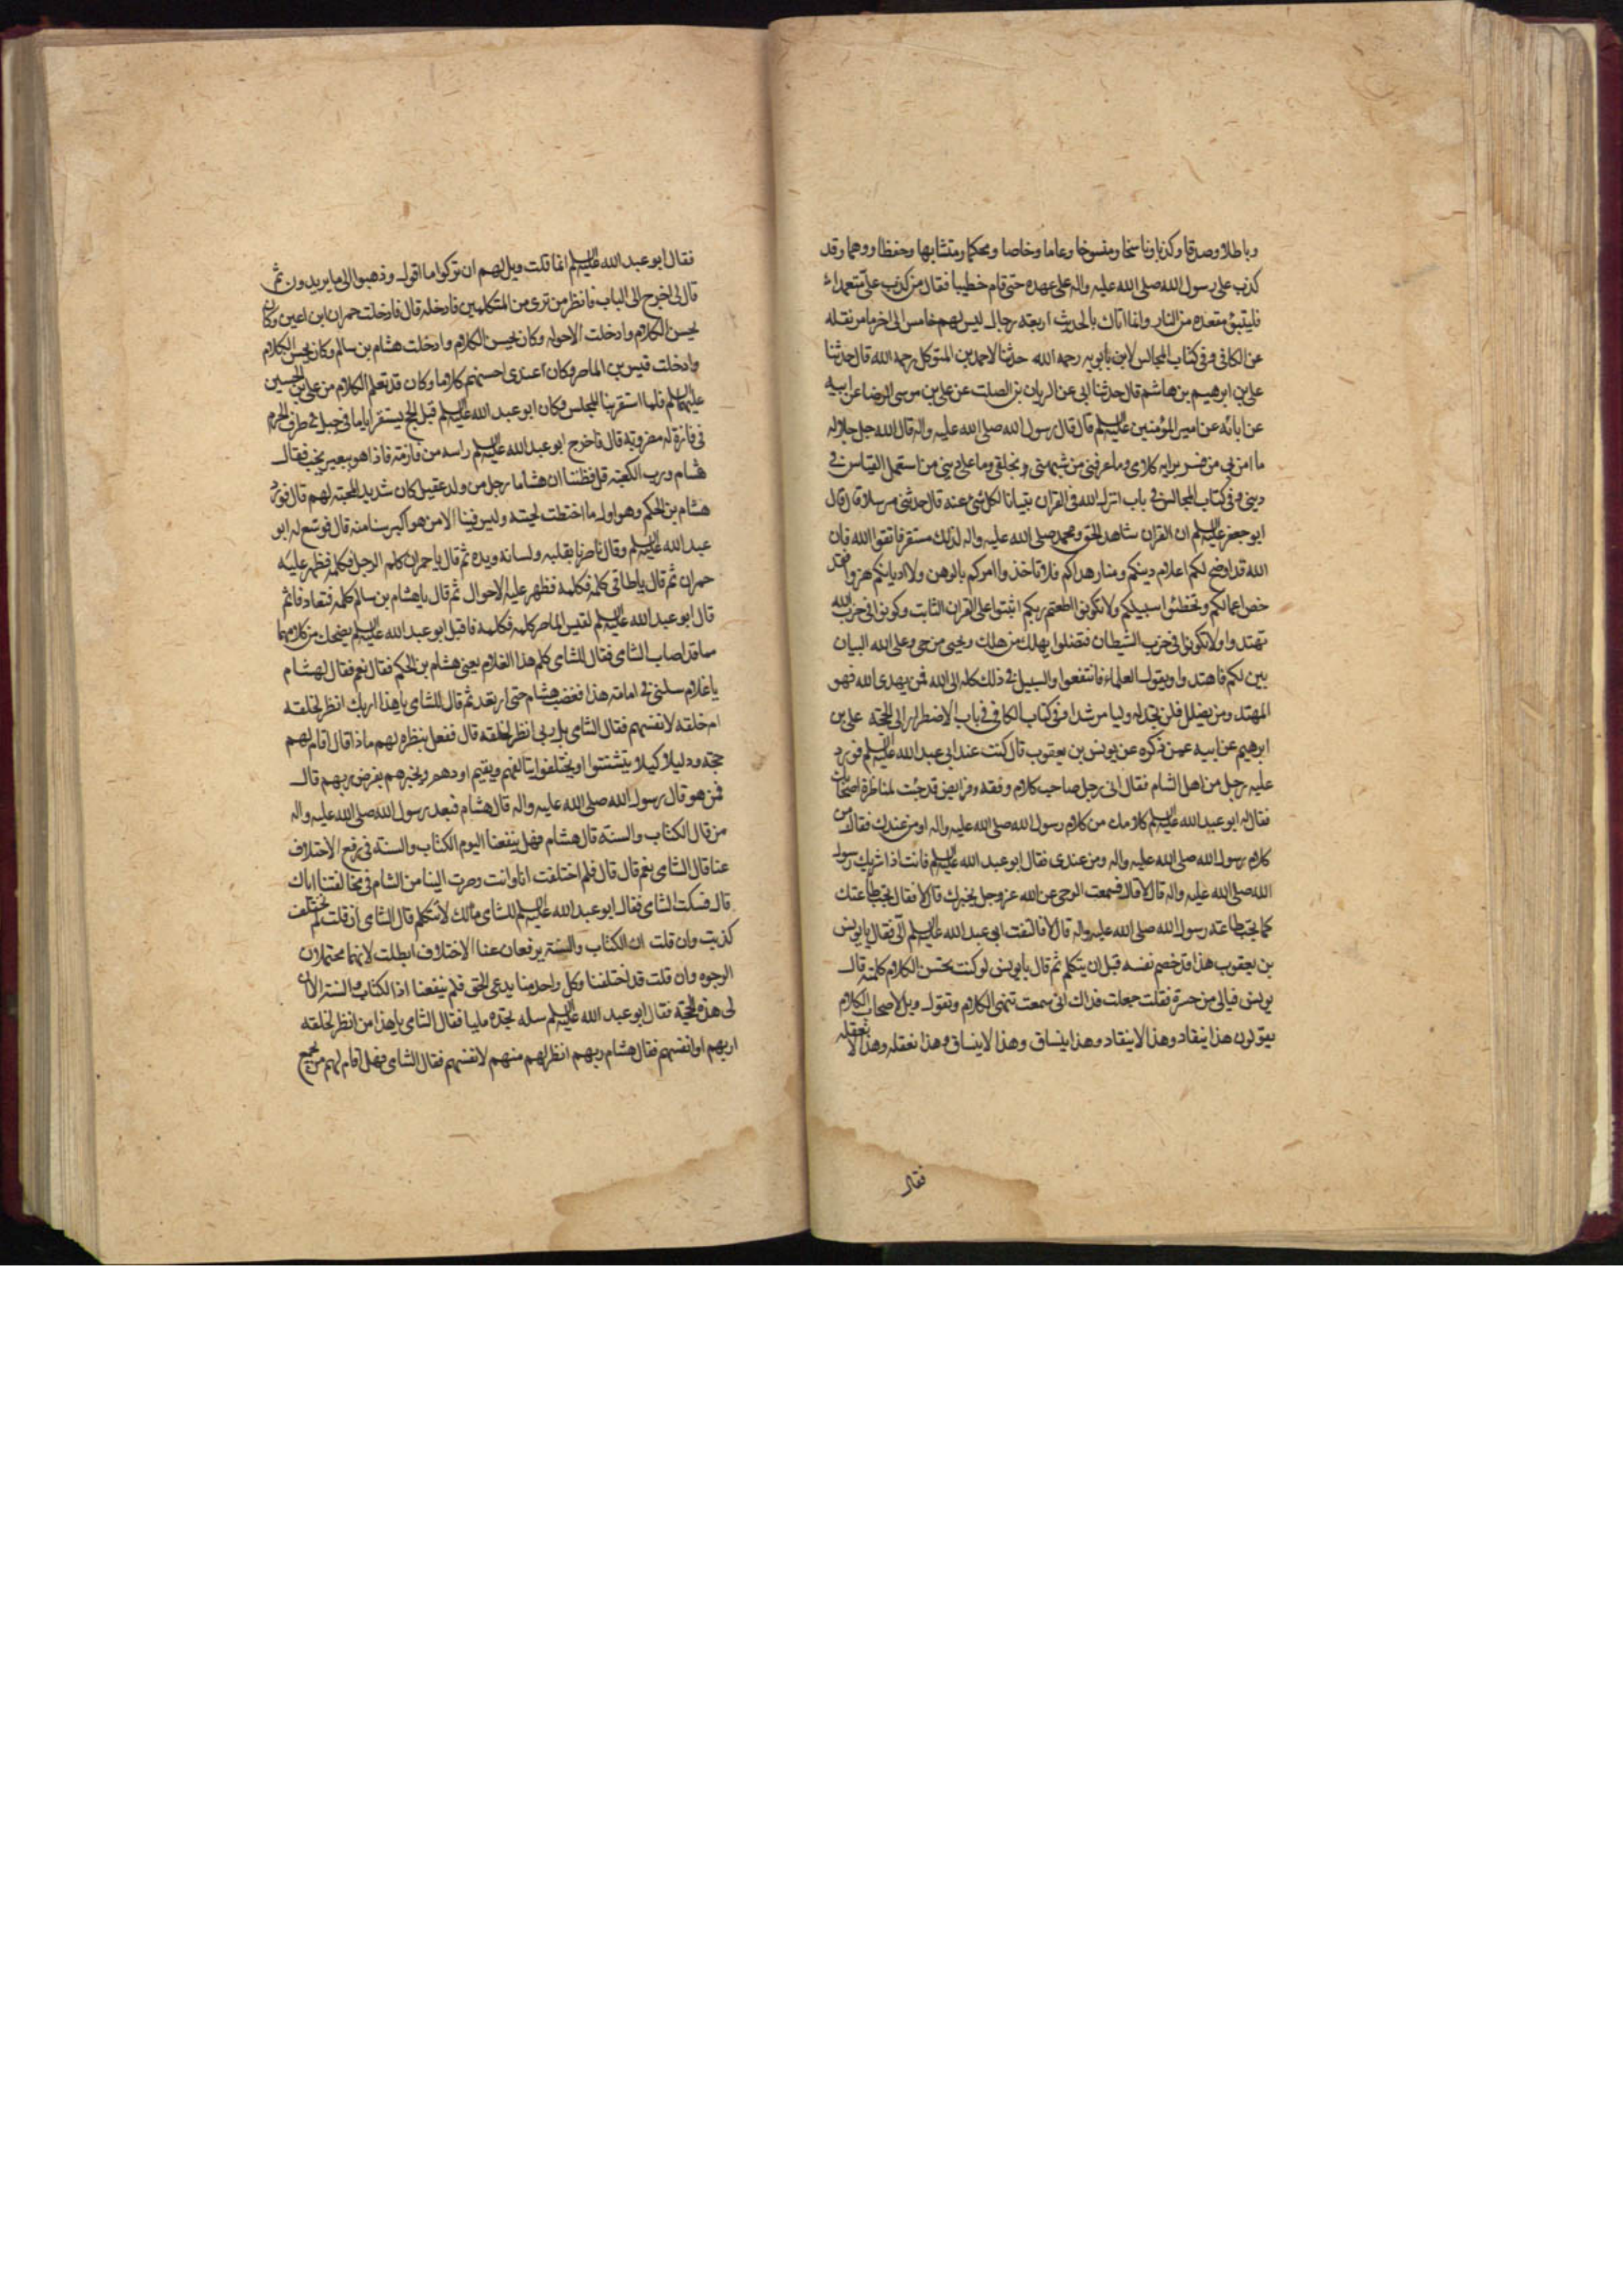 وباطلا وصدقا وكذبا وناسخا ومنسوخا وعاما وخاصا ومحكما ومتشابها وحفظا ووهما وقد
كذب على رسول الله صلى الله عليه واله على عهده حتى قام خطيبا فقال من كذب على متعمدا
فليتبوء مقعده من النار وانما اتاك بالحديث اربعة رجال ليس لهم خامس الى اخر ما مر نقله
عن الكافى وفى كتاب المجالس لابن بابويه رحمه الله حدثنا محمد بن المتوكل رحمه الله قال حدثنا
على بن ابرهيم بن هاشم قال حدثنا ابى عن الريان بن الصلت عن على بن موسى الرضا عن ابيه
عن ابائه عن امير المؤمنين عليه السلم قال قال رسول الله صلى الله عليه واله قال الله جل جلاله
ما امن بى من فسر برايه كلامى وما عرفنى من شبهنى بخلقى وما على دينى من استعمل القياس فى
دينى وفى كتاب المجالس فى باب انزل الله فى القران تبيانا لكل شئ عنه قال حدثنى مرسلا قال قال
ابو جعفر عليه السلم ان القران شاهد الحق ومحمد صلى الله عليه واله لذلك مستقر فاتقوا الله فان
الله قد اوضح لكم اعلام دينكم ومنار هداكم فلا تاخذوا امركم بالوهن ولا اديانكم هزوا
اعمالكم وتخطئوا سبيلكم ولا تكونوا اطعتم ربكم اثبتوا على القران الثابت وكونوا فى حزب الله
تهتدوا ولا تكونوا فى حزب الشيطان فتضلوا يهلك من هلك ويحيى من حى وعلى الله البيان
بين لكم فاهتدوا وبقول العلماء فانتفعوا والسبيل فى ذلك كله الى الله فمن يهدى الله فهو
المهتد ومن يضلل فلن تجد له وليا مرشدا وفى كتاب الكافى فى باب الاضطرار الى الحجة على بن
ابرهيم عن ابيه عمن ذكره عن يونس بن يعقوب قال كنت عند ابى عبد الله عليه السلم فورد
عليه رجل من اهل الشام فقال انى رجل صاحب كلام وفقه وفرايض قد جئت لمناظرة اصحابك
فقال له ابو عبد الله عليه السلم كلامك من كلام رسول الله صلى الله عليه واله او من عندك فقال من
كلام رسول الله صلى الله عليه واله ومن عندى فقال ابو عبد الله عليه السلم فانت اذا شريك رسول
الله صلى الله عليه واله قال لا قال فسمعت الوحى عن الله عز وجل يخبرك قال لا فقال تجب طاعتك
كما تجب طاعة رسول الله صلى الله عليه واله قال لا فالتفت ابى عبد الله عليه السلم الى فقال يا يونس
بن يعقوب هذا قد خصم نفسه قبل ان يتكلم ثم قال يا يونس لو كنت تحسن الكلام كلمته قال
يونس فيالى من حسرة فقلت جعلت فداك انى سمعت تنهى الكلام وتقول ويل لاصحاب الكلام
يقولون هذا ينقاد وهذا لا ينقاد وهذا ينساق وهذا لا ينساق وهذا نعقله وهذا لا نعقله
فقال
فقال ابو عبد الله عليه السلم انما قلت ويل لهم ان تركوا ما اقول وذهبوا الى ما يريدون ثم
قال لى اخرج الى الباب فانظر من ترى من المتكلمين فادخله قال فادخلت حمران ابن اعين وكان
يحسن الكلام وادخلت الاحول وكان يحسن الكلام وادخلت هشام بن سالم وكان يحسن الكلام
وادخلت قيس بن الماصر وكان عندى احسنهم كلاما وكان قد تعلم الكلام من على بن الحسين
عليهما السلم فلما استقر بنا المجلس وكان ابو عبد الله عليه السلم قبل الحج يستقر اياما فى جبل فى طرف الحرم
فى فازة له مضروبة قال فاخرج ابو عبد الله عليه السلم راسه من فازته فاذا هو ببعير يخب فقال
هشام ورب الكعبة قال فظننا ان هشاما رجل من ولد عقيل كان شديد المحبة لهم قال فورد
هشام بن الحكم وهو اول ما اختطت لحيته وليس فينا الا من هو اكبر سنا منه قال فوسع له ابو
عبد الله عليه السلم وقال ناصرنا بقلبه ولسانه ويده ثم قال يا حمران كلم الرجل فكلمه فظهر عليه
حمران ثم قال يا طاقى كلمه فكلمه فظهر عليه الاحوال ثم قال يا هشام بن سالم كلمه فتعارفا ثم
قال ابو عبد الله عليه السلم لقيس الماصر كلمه فكلمه فاقبل ابو عبد الله عليه السلم يضحك من كلامهما
مما قد اصاب الشامى فقال للشامى كلم هذا الغلام يعنى هشام بن الحكم فقال نعم فقال لهشام
يا غلام سلنى فى امامة هذا فغضب هشام حتى ارتعد ثم قال للشامى يا هذا اربك انظر لخلقه
ام خلقه لانفسهم فقال الشامى بل ربى انظر لخلقه قال ففعل بنظره لهم ماذا قال اقام لهم
حجة ودليلا كيلا يتشتتوا او يختلفوا يتالفهم ويقيم اودهم ويخبرهم بفرض ربهم قال
فمن هو قال رسول الله صلى الله عليه واله قال هشام فبعد رسول الله صلى الله عليه واله
من قال الكتاب والسنة قال هشام فهل ينفعنا اليوم الكتاب والسنة فى رفع الاختلاف
عنا قال الشامى نعم قال قال فلم اختلفت انا وانت وصرت الينا من الشام فى مخالفتنا اياك
قال فسكت الشامى فقال ابو عبد الله عليه السلم للشامى مالك لا تتكلم قال الشامى ان قلت لم نختلف
كذبت وان قلت ان الكتاب والسنة يرفعان عنا الاختلاف ابطلت لانهما يحتملان
الوجوه وان قلت قد اختلفنا وكل واحد منا يدعى الحق فلم ينفعنا اذا الكتاب والسنة الا ان
لى هذه الحجة فقال ابو عبد الله عليه السلم سله تجده مليا فقال الشامى يا هذا من انظر لخلقه
اربهم او انفسهم فقال هشام ربهم انظر لهم منهم لانفسهم فقال الشامى فهل اقام لهم من يجمع